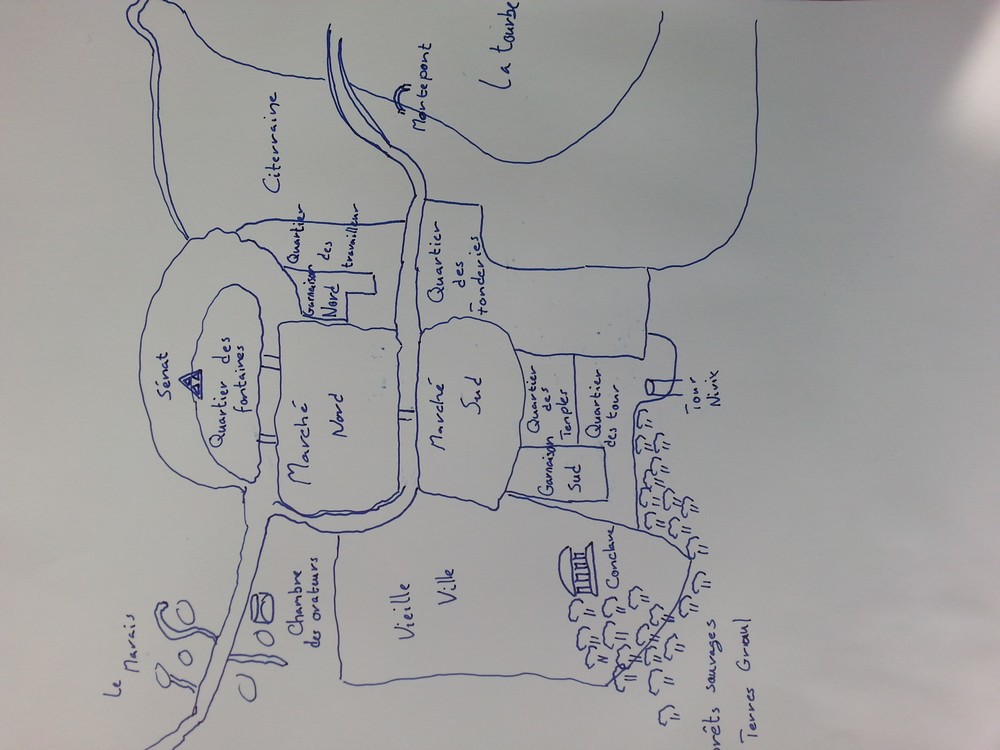 Le Marais
Sénat
Quartier des
fontaines
Chambre
des orateurs
Marché
Nord
Garnaison
Nord
Quartier
des
travailleur
Citerraine
Montepont
La tourbe
Vieille
Ville
Marché
Sud
Quartier
des
fonderies
Quartier
des
Temples
Garnaison
Sud
Quartier
des tour
Conclave
Tour
Nivix
orêts sauvages
Terres Graul